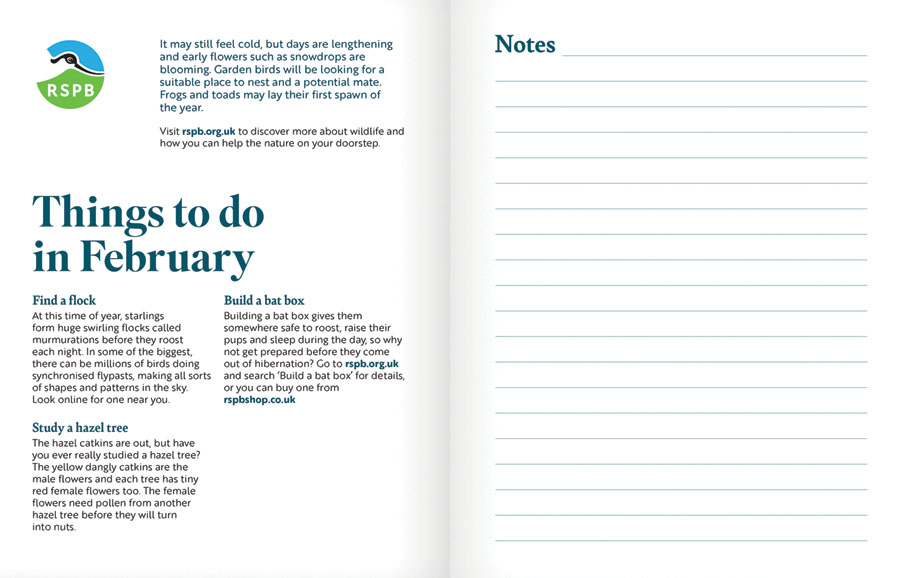 RSPB
It may still feel cold, but days are lengthening
and early flowers such as snowdrops are
blooming. Garden birds will be looking for a
suitable place to nest and a potential mate.
Frogs and toads may lay their first spawn of
the year.
Visit rspb.org.uk to discover more about wildlife and
how you can help the nature on your doorstep.
Things to do
in February
Find a flock
At this time of year, starlings
form huge swirling flocks called
murmurations before they roost
each night. In some of the biggest,
there can be millions of birds doing
synchronised flypasts, making all sorts
of shapes and patterns in the sky.
Look online for one near you.
Study a hazel tree
The hazel catkins are out, but have
you ever really studied a hazel tree?
The yellow dangly catkins are the
male flowers and each tree has tiny
red female flowers too. The female
flowers need pollen from another
hazel tree before they will turn
into nuts.
Build a bat box
Building a bat box gives them
somewhere safe to roost, raise their
pups and sleep during the day, so why
not get prepared before they come
out of hibernation? Go to rspb.org.uk
and search ‘Build a bat box’ for details,
or you can buy one from
rspbshop.co.uk
Notes